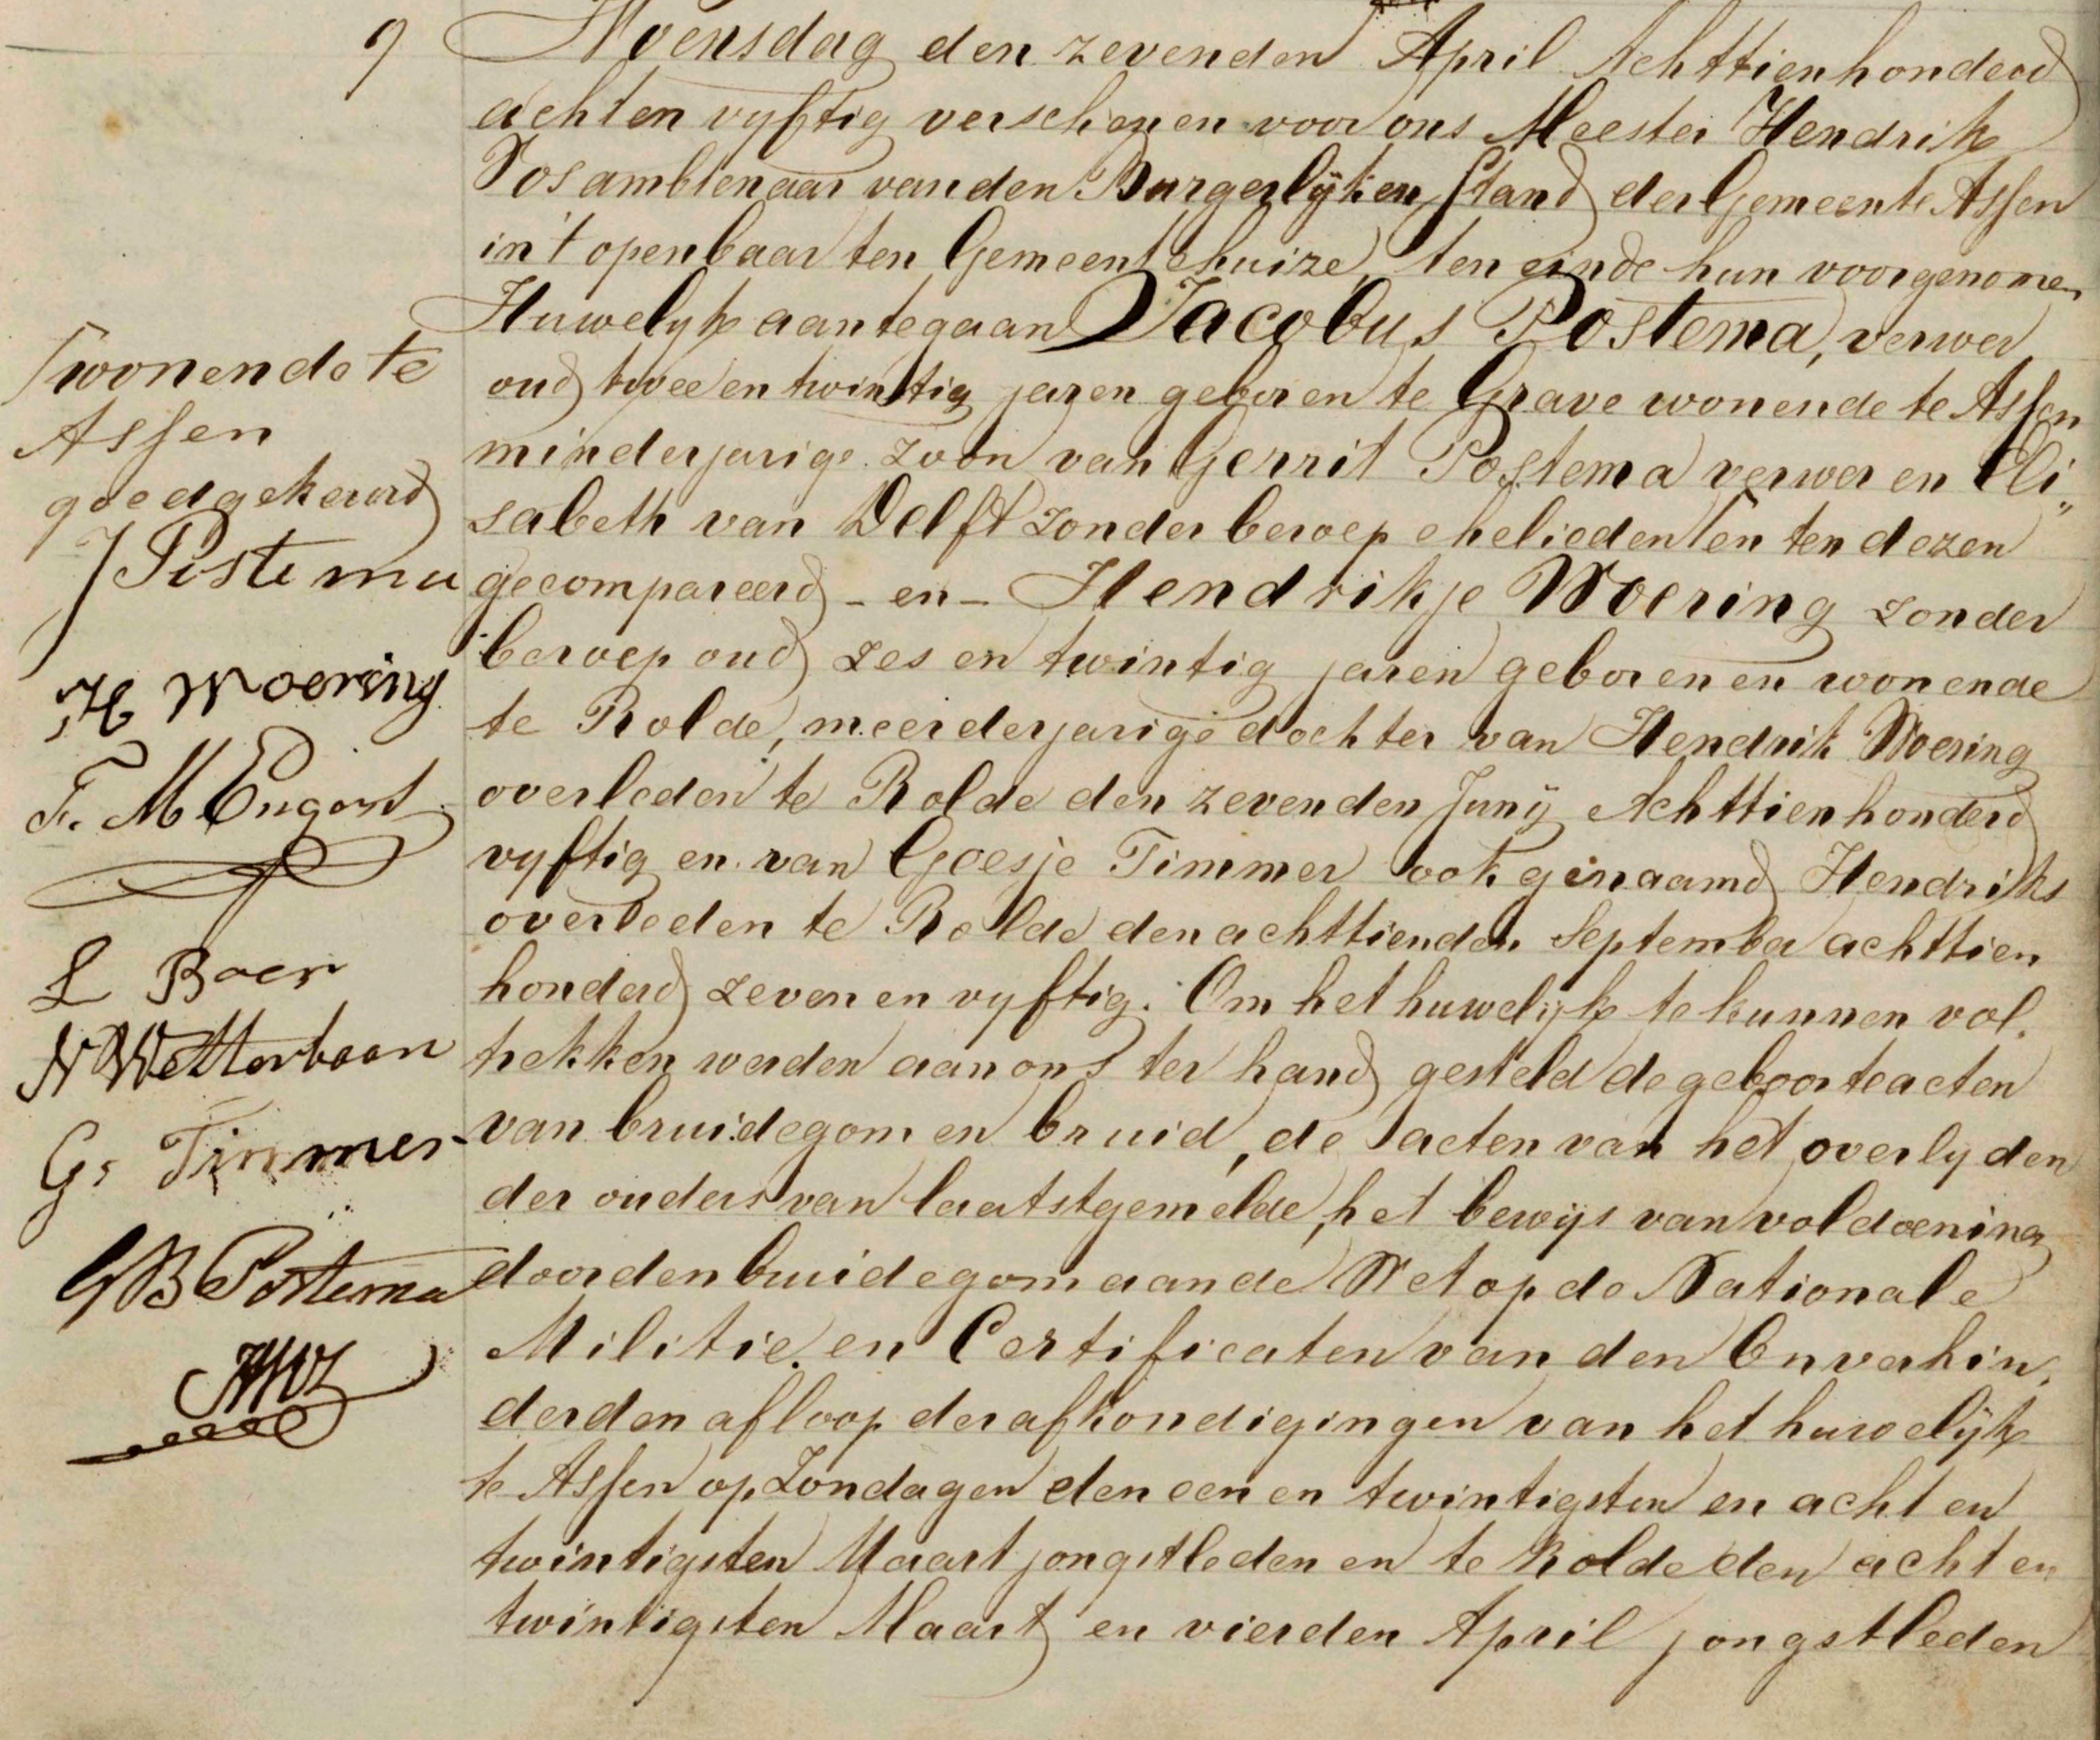 9
Woensdag den zevenden April Achttienhonderd
achten vyftig verschenen voor ons Meester Hendrik
Vos ambtenaar van den Burgerlijken Stand der Gemeente Assen
in 't openbaar ten Gemeentehuize, ten einde hun voorgenomen
Huwelyk aantegaan Jacobus Postema, verwer
oud twee en twintig jaren geboren te Grave wonende te Assen
minderjarige zoon van Gerrit Postema verwer en Eli„
sabeth van Delft zonder beroep echelieden en ten dezen
gecompareerd - en - Hendrikje Woering zonder
beroep oud zes en twintig jaren geboren en wonende
te Rolde, meerderjarige dochter van Hendrik Woering
overleden te Rolde den zevenden Junij Achttienhonderd
vyftig en van Goesje Timmer ook genaamd Hendriks
overleden te Rolde den achttienden September achttien
honderd zeven en vyftig. Om het huwelijk te kunnen vol.
trekken werden aan ons ter hand gesteld de geboorteacten
van bruidegom en bruid, de acten van het overlyden
der ouders van laatstgemelde, het bewijs van voldoening
door den buidegom aan de Wet op de Nationale
Militie, en Certificaten van den Onverhin.
derden afloop der afkondigingen van het huwelijk
te Assen op Zondagen den een en twintigsten en acht en
twintigsten Maart jongstleden en te Rolde den acht en
twintigsten Maart en vierden April jongstleden
wonende te
Assen
goedgekeurd
J Postema
H Woering
L Boer
N Wetterbaan
G. Timmer
GB Postema